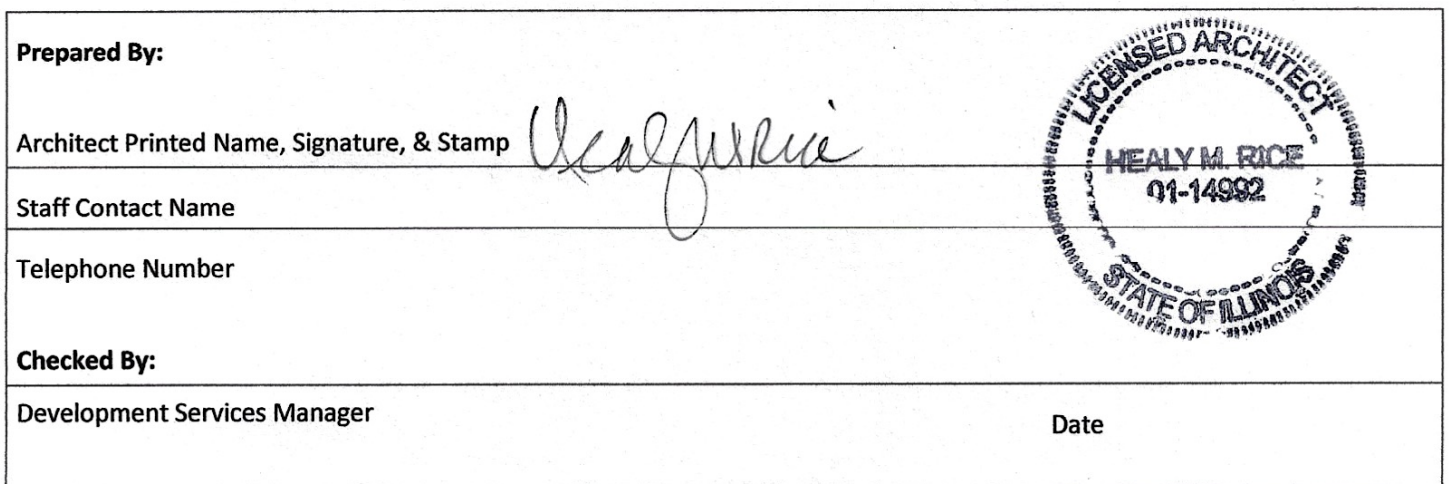 Prepared By:
Architect Printed Name, Signature, & Stamp Healy M Rice
LICENSED ARCHITECT
HEALY M. RICE
01-14992
STATE OF ILLINOIS
Staff Contact Name
Telephone Number
Checked By:
Development Services Manager
Date